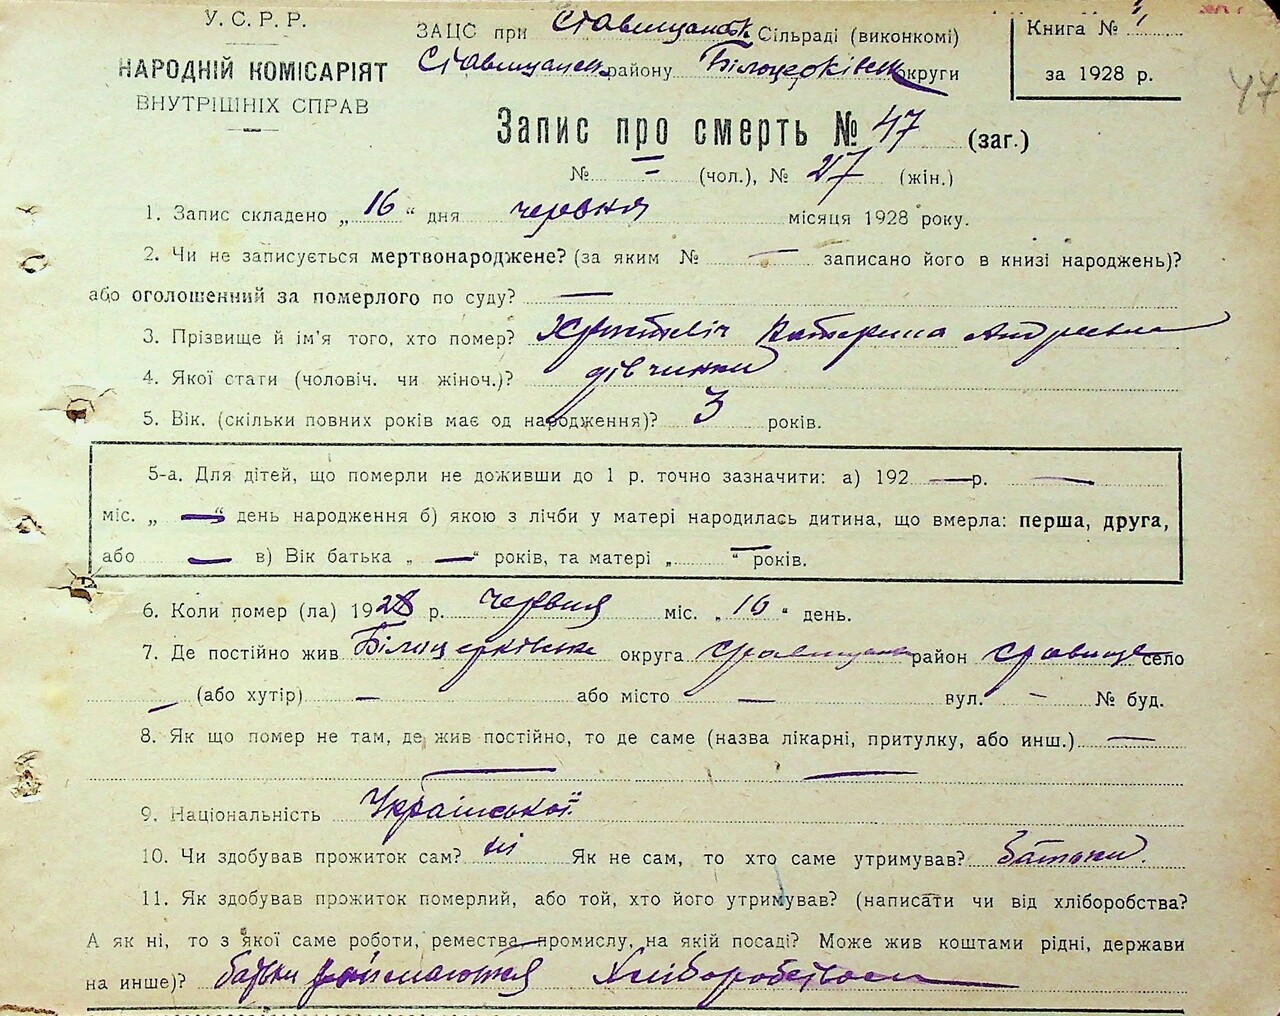 У. С. Р. Р.
НАРОДНІЙ КОМІСАРІЯТ
ВНУТРІШНІХ СПРАВ
ЗАЦС при Ставищанськ Сільраді (виконкомі)
Ставищанськ району Білоцерківськ округи
Книга №
за 1928 р.
47
Запис про смерть № 47 (заг.)
№ — (чол.), № 27 (жін.)
1. Запис складено „ 16 “ дня червня місяця 1928 року.
2. Чи не записується мертвонароджене? (за яким № — записано його в книзі народжень)?
або оголошенний за померлого по суду? —
3. Прізвище й ім'я того, хто помер? Катерина Андреевна
4. Якої стати (чоловіч. чи жіноч.)? дівчинки
5. Вік. (скільки повних років має од народження)? 3 років.
5-а. Для дітей, що померли не доживши до 1 р. точно зазначити: а) 192 — р. —
міс. „ — “ день народження б) якою з лічби у матері народилась дитина, що вмерла: перша, друга,
або — в) Вік батька „ — “ років, та матері „ — “ років.
6. Коли помер (ла) 1928 р. червня міс. „ 16 “ день.
7. Де постійно жив Білоцерківське округа Ставищанськ район Ставище село
— (або хутір) — або місто — вул. — № буд.
8. Як що помер не там, де жив постійно, то де саме (назва лікарні, притулку, або инш.) —
— —
9. Національність Української
10. Чи здобував прожиток сам? ні Як не сам, то хто саме утримував? батьки.
11. Як здобував прожиток померлий, або той, хто його утримував? (написати чи від хліборобства?
А як ні, то з якої саме роботи, ремества, промислу, на якій посаді? Може жив коштами рідні, держави
на инше)? батьки займаються Хліборобством